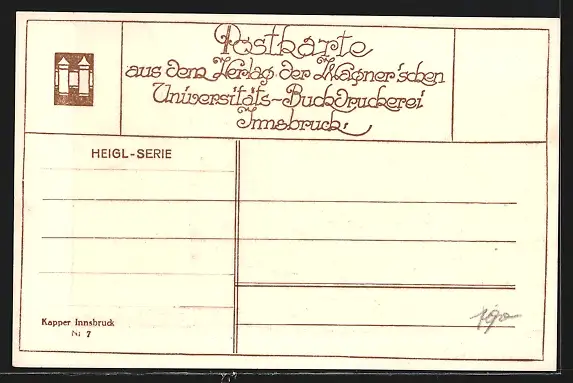 Postkarte
aus dem Verlag der Wagner'schen
Universitäts-Buchdruckerei
Innsbruck.
HEIGL-SERIE
Kapper Innsbruck
Nr 7